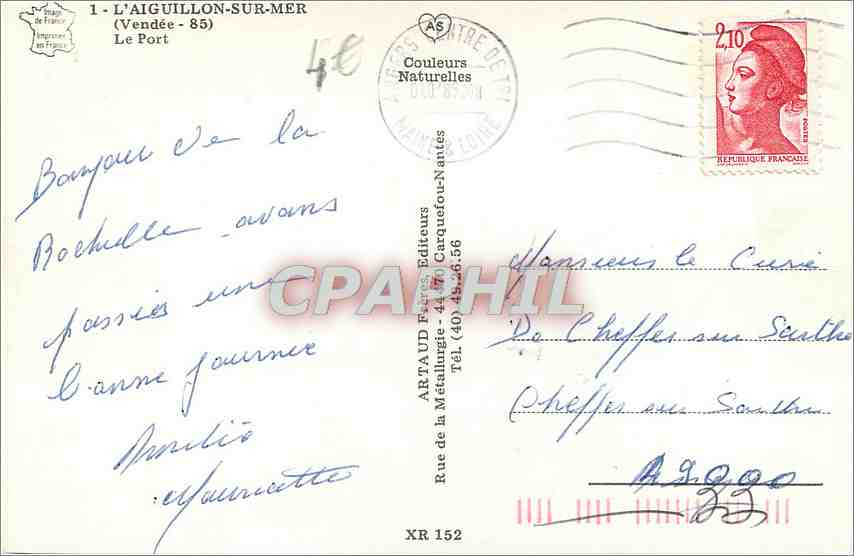 Image
de France
Imprimée
en France
1 - L'AIGUILLON-SUR-MER
(Vendée - 85)
Le Port
4€
AS
Couleurs
Naturelles
ANGERS CENTRE DE TRI
MAINE & LOIRE
2,10
POSTES
REPUBLIQUE FRANÇAISE
Bonjour de la
Rochelle avons
passés une
bonne journée
Mauricette
ARTAUD Frères, Editeurs
Rue de la Métallurgie - 44470 Carquefou-Nantes
Tél. (40) 49.26.56
CPAPHIL
Monsieur le Curé
De Cheffes sur Sarthe
Cheffes sur Sarthe
XR 152